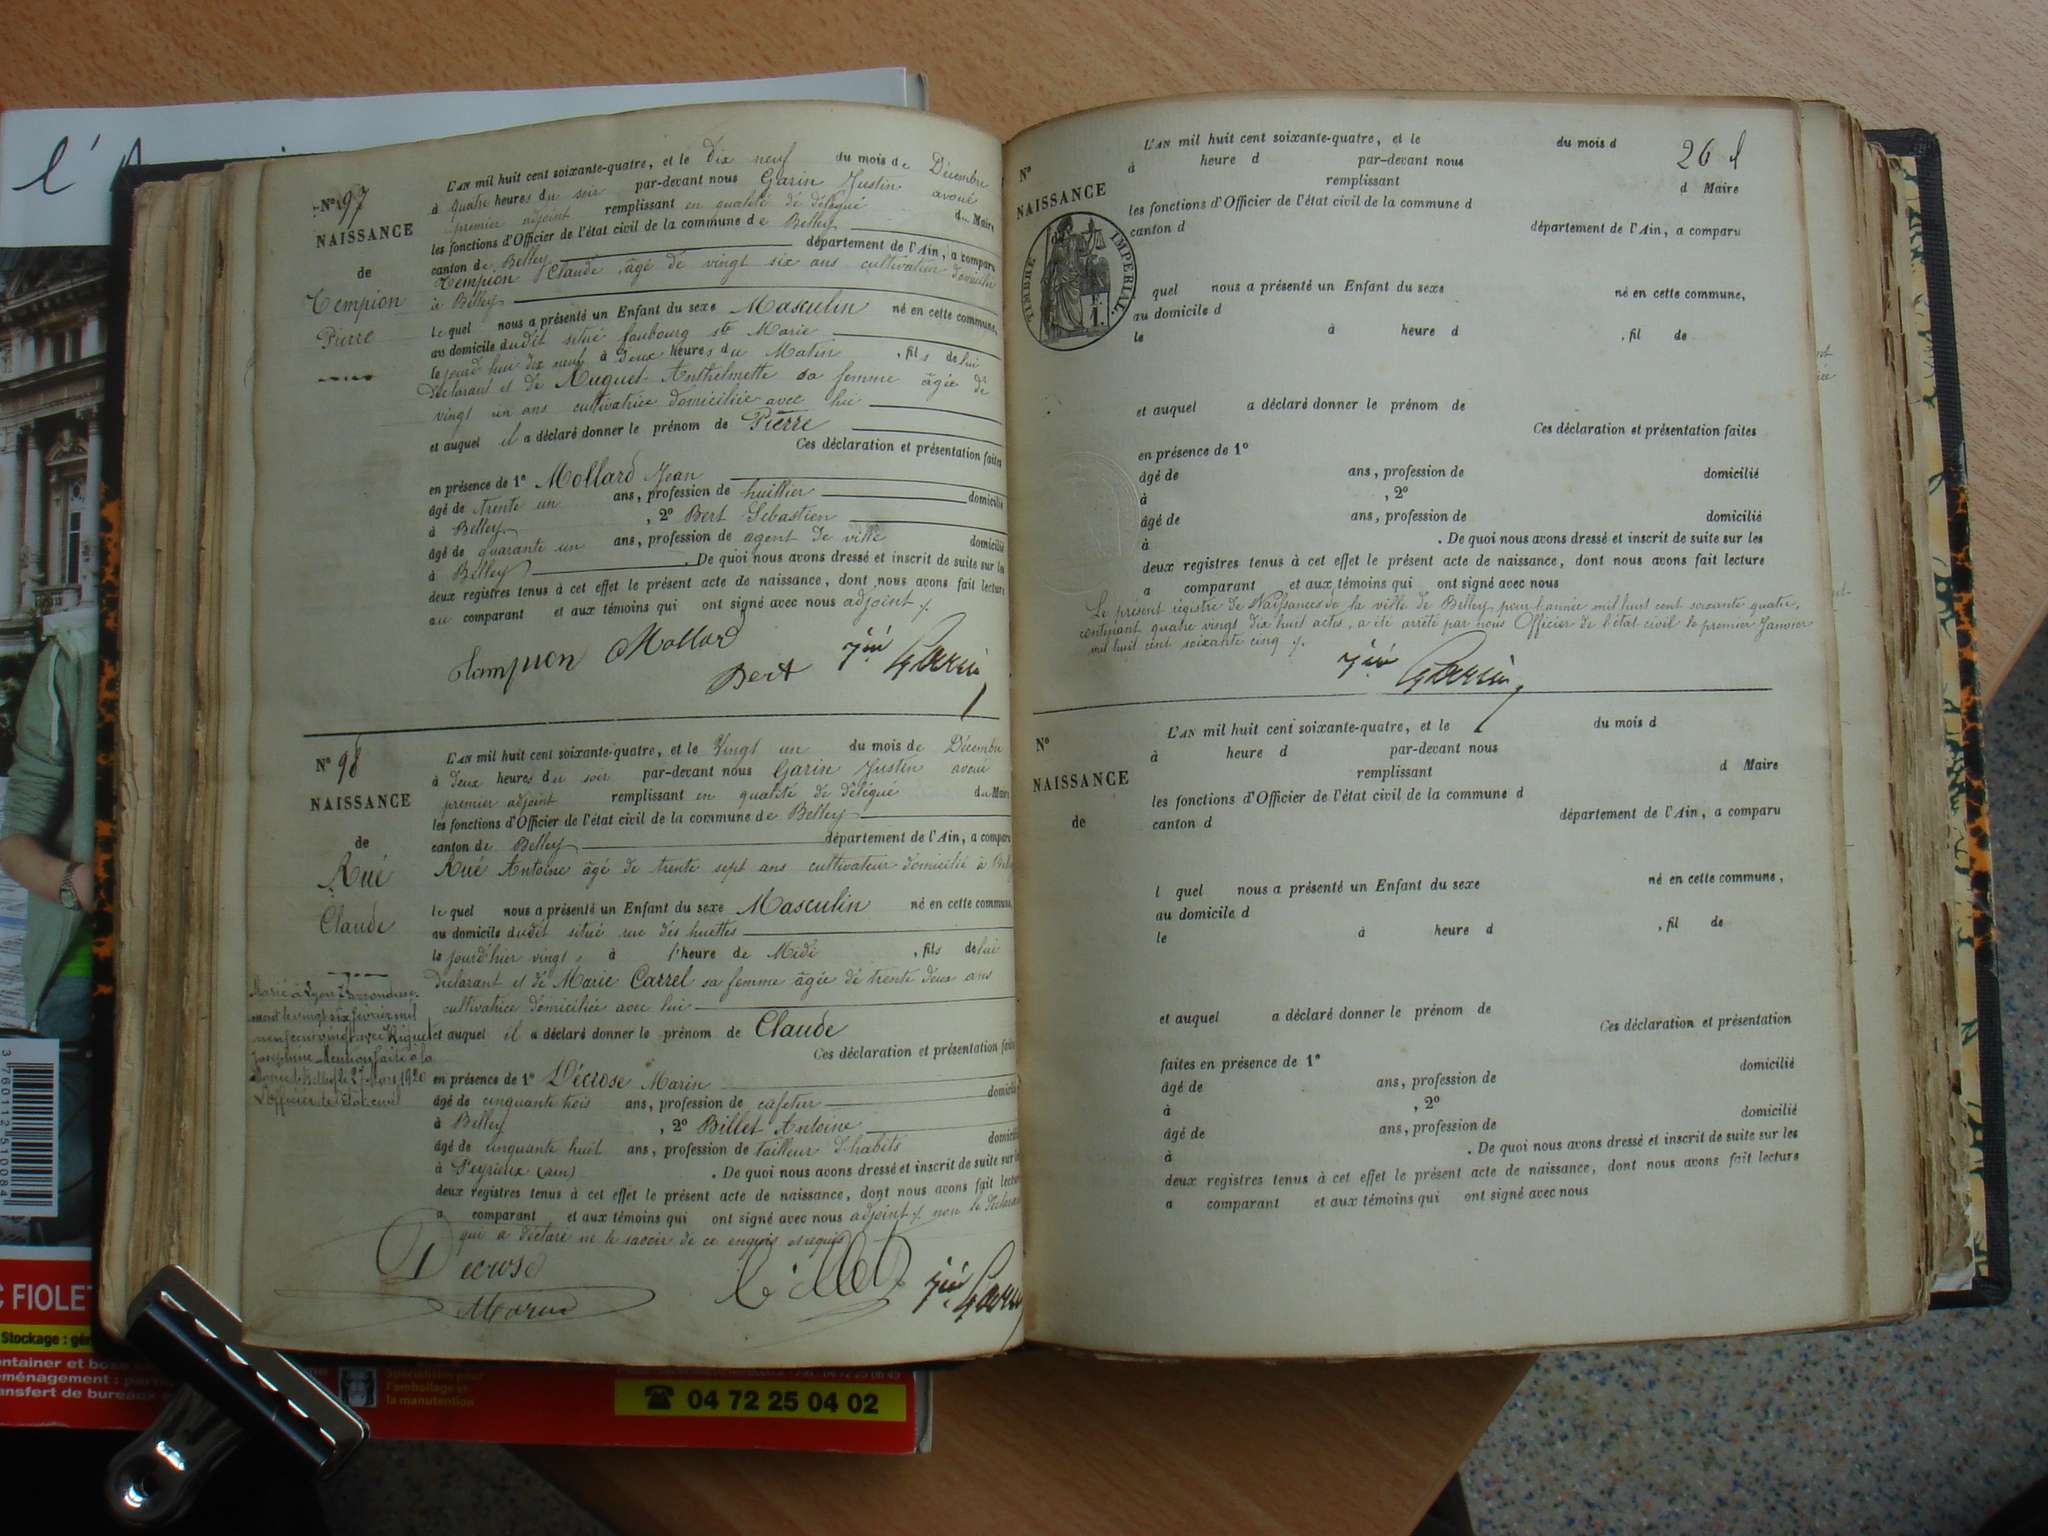 l'
N° 97
NAISSANCE
de
Tempion
Pierre
L'AN mil huit cent soixante-quatre, et le dix neuf du mois de Décembre
à quatre heures du soir par-devant nous Garin Justin avoué
premier adjoint remplissant en qualité de délégué d... Maire
les fonctions d'Officier de l'état civil de la commune de Belley
canton de Belley département de l'Ain, a comparu
Tempion Claude, âgé de vingt six ans cultivateur domicilié
à Belley
le quel nous a présenté un Enfant du sexe Masculin né en cette commune,
au domicile dudit situé faubourg ste Marie
le jourd'hui dix neuf à deux heures du Matin, fils de lui
Déclarant et de Auguet Anthelmette sa femme âgée de
vingt un ans cultivatrice domiciliée avec lui
et auquel il a déclaré donner le prénom de Pierre
Ces déclaration et présentation faites
en présence de 1° Mollard Jean
âgé de trente un ans, profession de huillier domicilié
à Belley, 2° Bert Sébastien
âgé de quarante un ans, profession de agent de ville domicilié
à Belley. De quoi nous avons dressé et inscrit de suite sur les
deux registres tenus à cet effet le présent acte de naissance, dont nous avons fait lecture
au comparant et aux témoins qui ont signé avec nous adjoint
Tempion Mollard
Bert Garin
N° 98
NAISSANCE
de
Rué
Claude
Marié à Lyon 7e arrondisse-
ment le vingt six février mil
neuf cent vingt avec Riguet
Joséphine Mention faite à la
Mairie de Belley le 27 Mars 1920
L'officier de l'état civil
L'AN mil huit cent soixante-quatre, et le Vingt un du mois de Décembre
à deux heures du soir par-devant nous Garin Justin avoué
premier adjoint remplissant en qualité de délégué du Maire
les fonctions d'Officier de l'état civil de la commune de Belley
canton de Belley département de l'Ain, a comparu
Rué Antoine âgé de trente sept ans cultivateur domicilié à Belley
le quel nous a présenté un Enfant du sexe Masculin né en cette commune,
au domicile dudit situé rue des huettes
le jourd'hier vingt, à l'heure de Midi, fils de lui
Déclarant et de Marie Carrel sa femme âgée de trente deux ans
cultivatrice domiciliée avec lui
et auquel il a déclaré donner le prénom de Claude
Ces déclaration et présentation faites
en présence de 1° Décrose Marin
âgé de cinquante trois ans, profession de cafetier domicilié
à Belley, 2° Billet Antoine
âgé de cinquante huit ans, profession de tailleur d'habits domicilié
à Peyrieux (ain). De quoi nous avons dressé et inscrit de suite sur les
deux registres tenus à cet effet le présent acte de naissance, dont nous avons fait lecture
a comparant et aux témoins qui ont signé avec nous adjoint non le déclarant
qui a déclaré ne le savoir de ce enquis et requis
Decrose
Marin
Billet
Garin
26
N°
NAISSANCE
d
TIMBRE IMPERIAL
F.
1.
L'AN mil huit cent soixante-quatre, et le du mois d
à heure d par-devant nous
remplissant d Maire
les fonctions d'Officier de l'état civil de la commune d
canton d département de l'Ain, a comparu
quel nous a présenté un Enfant du sexe né en cette commune,
au domicile d
le à heure d, fil de
et auquel a déclaré donner le prénom de
Ces déclaration et présentation faites
en présence de 1°
âgé de ans, profession de domicilié
à, 2°
âgé de ans, profession de domicilié
à. De quoi nous avons dressé et inscrit de suite sur les
deux registres tenus à cet effet le présent acte de naissance, dont nous avons fait lecture
a comparant et aux témoins qui ont signé avec nous
Le présent régistre de Naissances de la ville de Belley pour l'année mil huit cent soixante quatre,
contenant quatre vingt dix huit actes, a été arrêté par nous Officier de l'état civil le premier Janvier
mil huit cent soixante cinq
Garin
N°
NAISSANCE
de
L'AN mil huit cent soixante-quatre, et le du mois d
à heure d par-devant nous
remplissant d Maire
les fonctions d'Officier de l'état civil de la commune d
canton d département de l'Ain, a comparu
l quel nous a présenté un Enfant du sexe né en cette commune,
au domicile d
le à heure d, fil de
et auquel a déclaré donner le prénom de
Ces déclaration et présentation
faites en présence de 1° domicilié
âgé de ans, profession de
à, 2° domicilié
âgé de ans, profession de
à. De quoi nous avons dressé et inscrit de suite sur les
deux registres tenus à cet effet le présent acte de naissance, dont nous avons fait lecture
a comparant et aux témoins qui ont signé avec nous
3 760112 510084
C FIOLET
Stockage :
container et
déménagement :
transfert de bureaux
Spécialistes pour
l'emballage et
la manutention
☎ 04 72 25 04 02